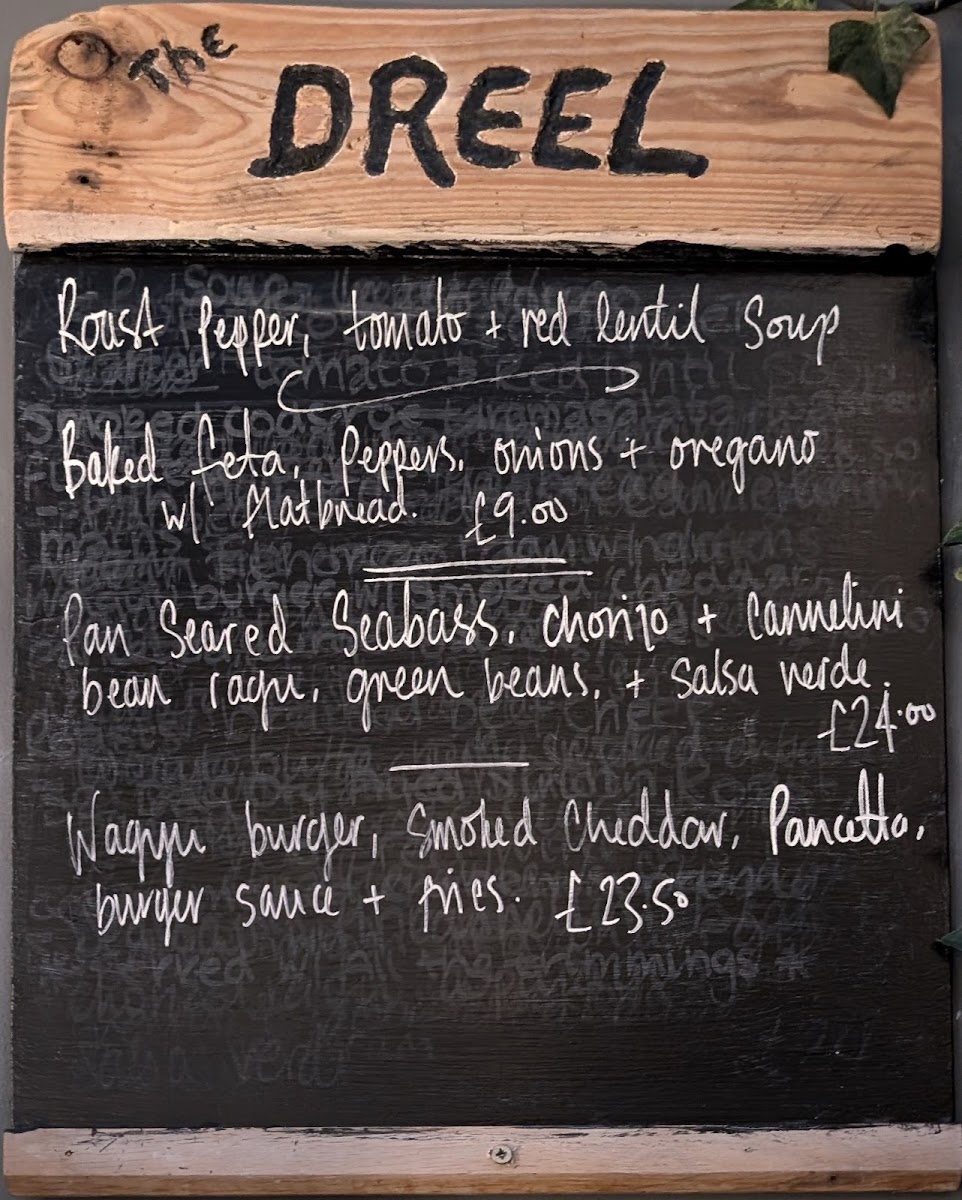 The
DREEL
Roast Pepper, tomato + red lentil Soup
Baked feta, Peppers, onions + oregano
w/ flatbread. £9.00
Pan Seared Seabass, chorizo + Cannelini
bean ragu, green beans, + salsa verde.
£24.00
Wagyu burger, Smoked Cheddar, Pancetta,
burger sauce + fries. £23.50